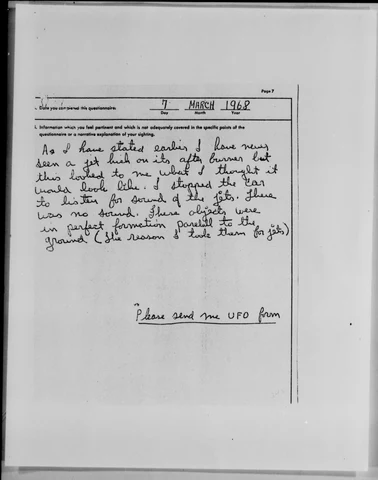 Page 7
Date you completed this questionnaire: 7 MARCH 1968
Day Month Year
Information which you feel pertinent and which is not adequately covered in the specific points of the
questionnaire or a narrative explanation of your sighting.
As I have stated earlier I have never
seen a jet kick on its after burner but
this looked to me what I thought it
would look like. I stopped the car
to listen for sound of the jets. There
was no sound. These objects were
in perfect formation parellel to the
ground (the reason I took them for jets)
Please send me UFO form